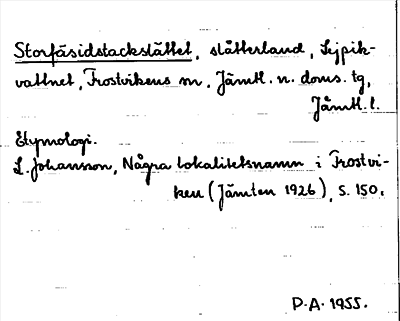 Storfäsidstackslättet, slåtterland, Sejpik-
vattnet, Frostvikens sn, Jämtl. n. doms. tg,
Jämtl. l.
Etymologi.
L. Johansson, Några lokalitetsnamn i Frostvi-
ken (Jämten 1926), s. 150.
P.A. 1955.